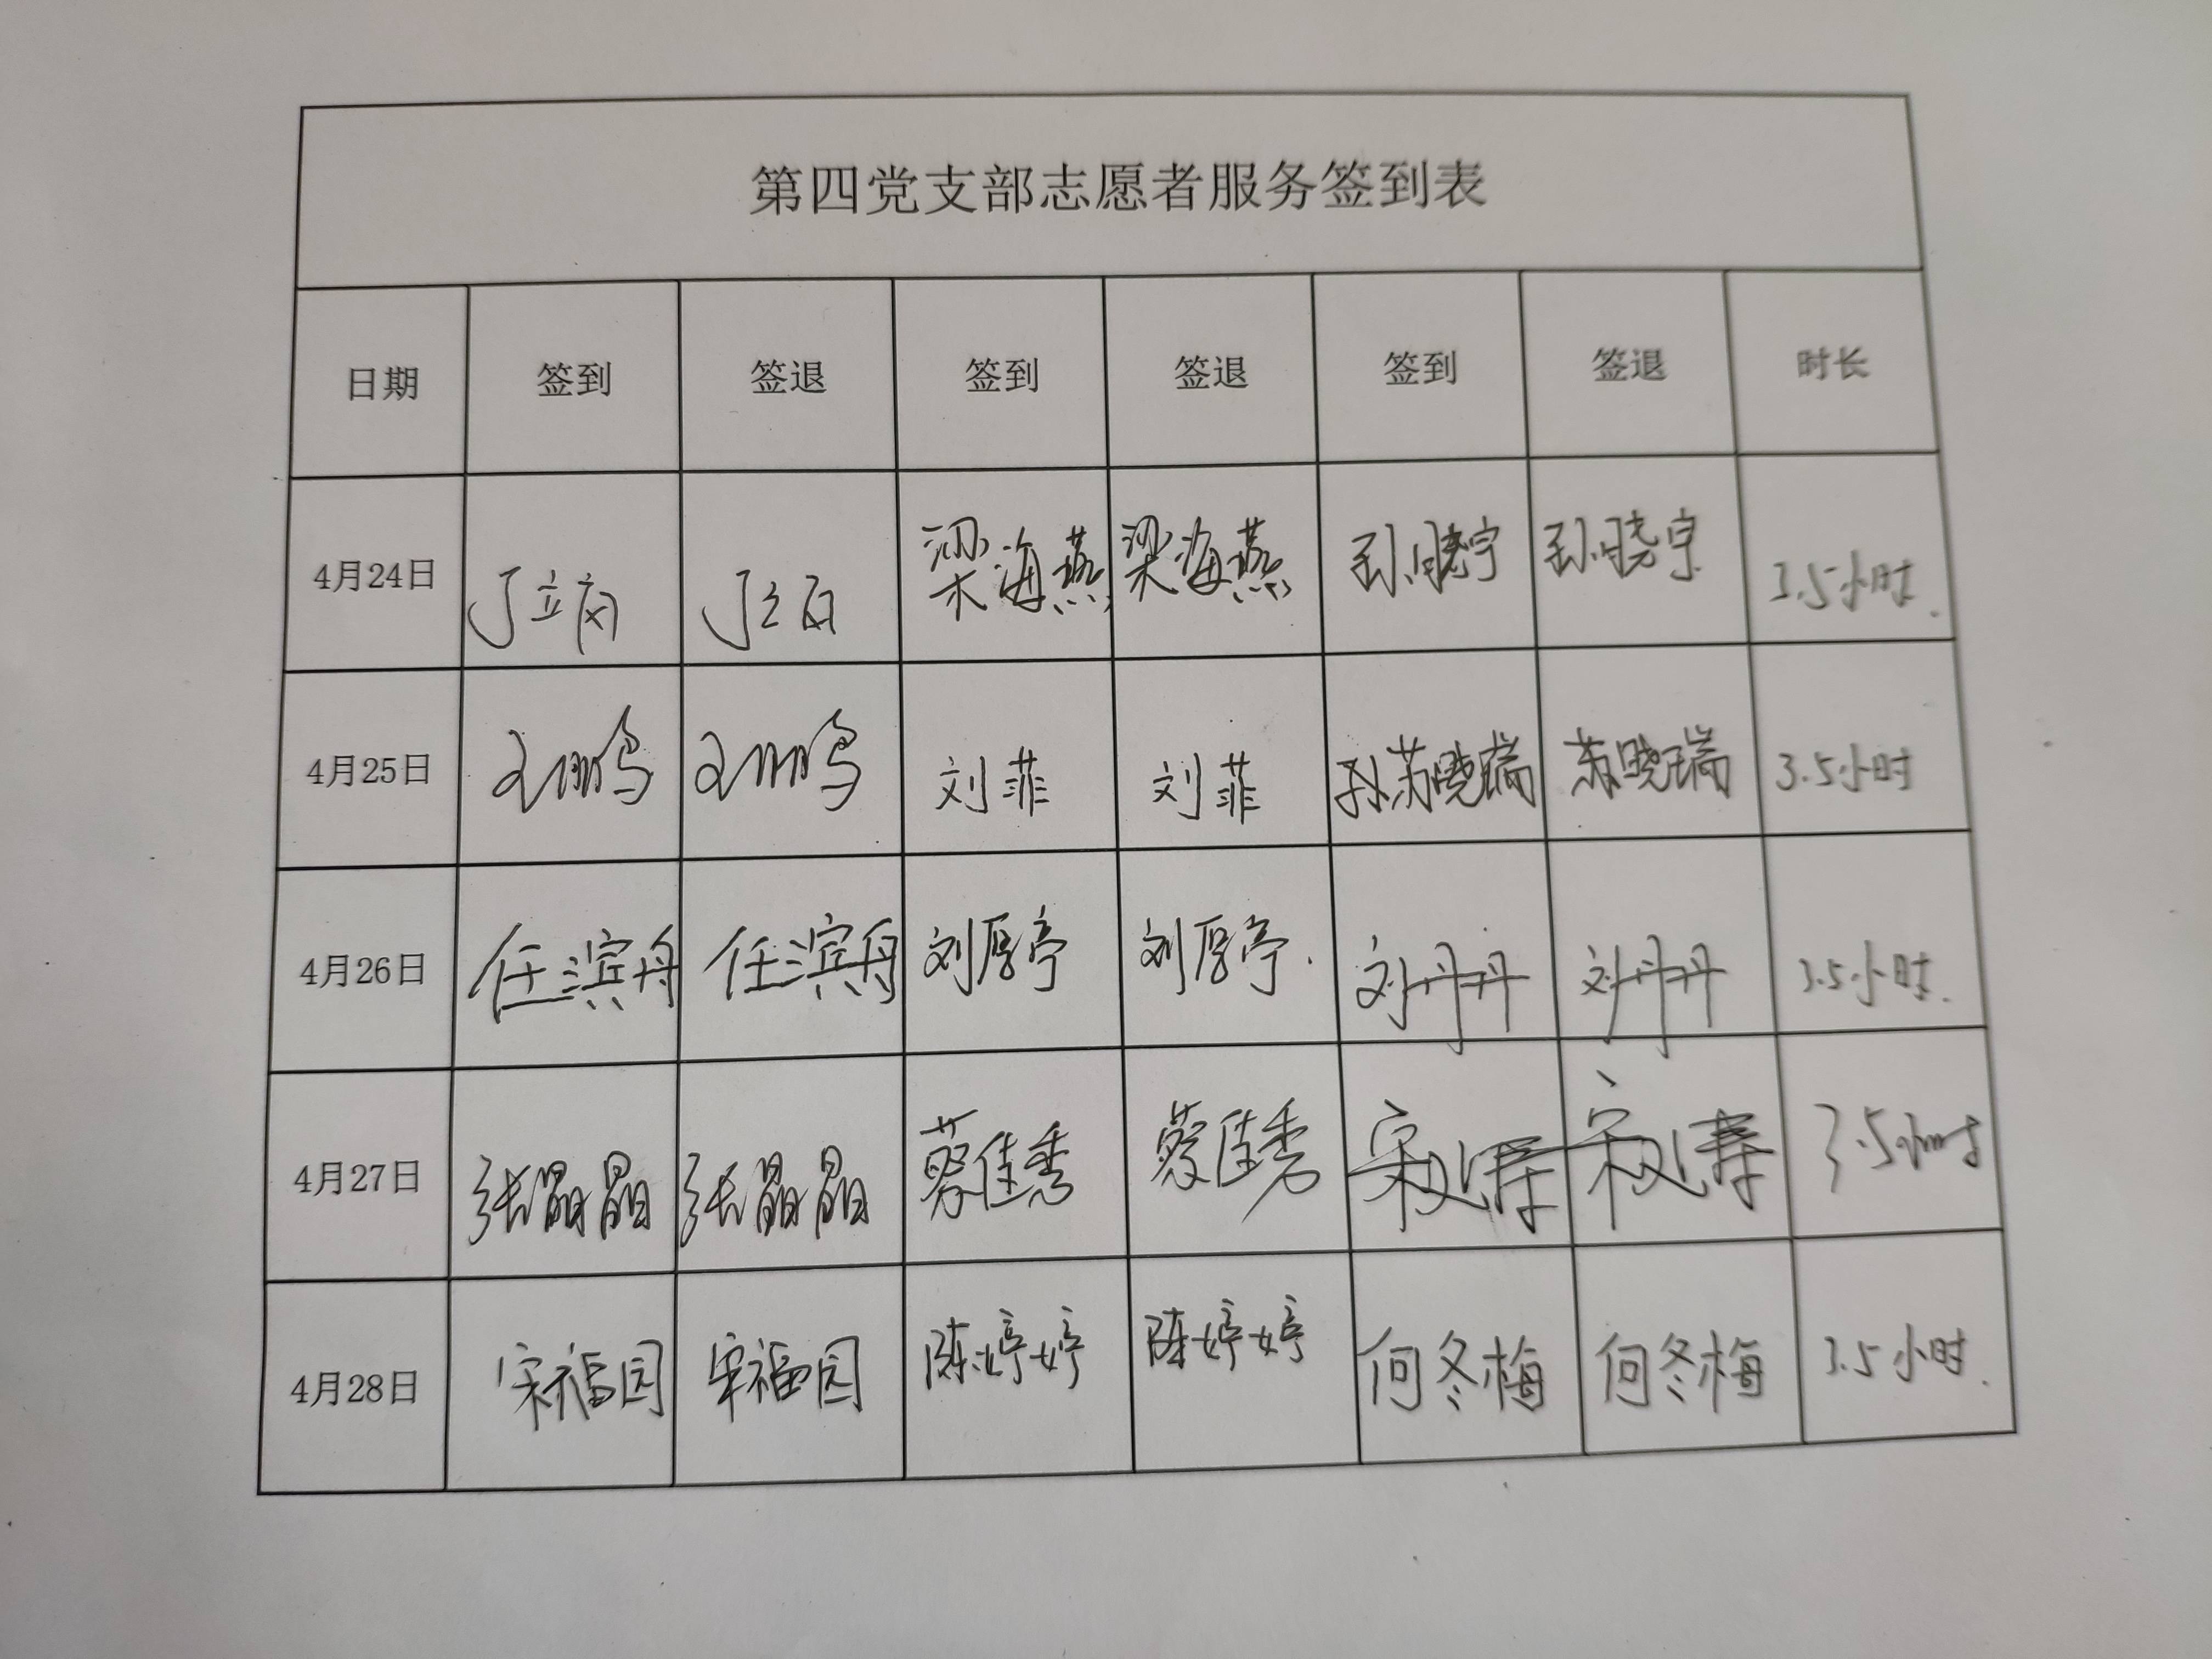 第四党支部志愿者服务签到表
日期 签到 签退 签到 签退 签到 签退 时长
4月24日 丁立 丁立 梁海燕 梁海燕 孙晓宇 孙晓宇 3.5小时.
4月25日 王鹏 王鹏 刘菲 刘菲 孙苏晓瑞 苏晓瑞 3.5小时
4月26日 任滨舟 任滨舟 刘厚亭 刘厚亭. 刘丹丹 刘丹丹 3.5小时.
4月27日 张晶晶 张晶晶 蔡佳秀 蔡佳秀 宋 宋 3.5小时
4月28日 宋福园 宋福园 陈婷婷 陈婷婷 何冬梅 何冬梅 3.5小时.